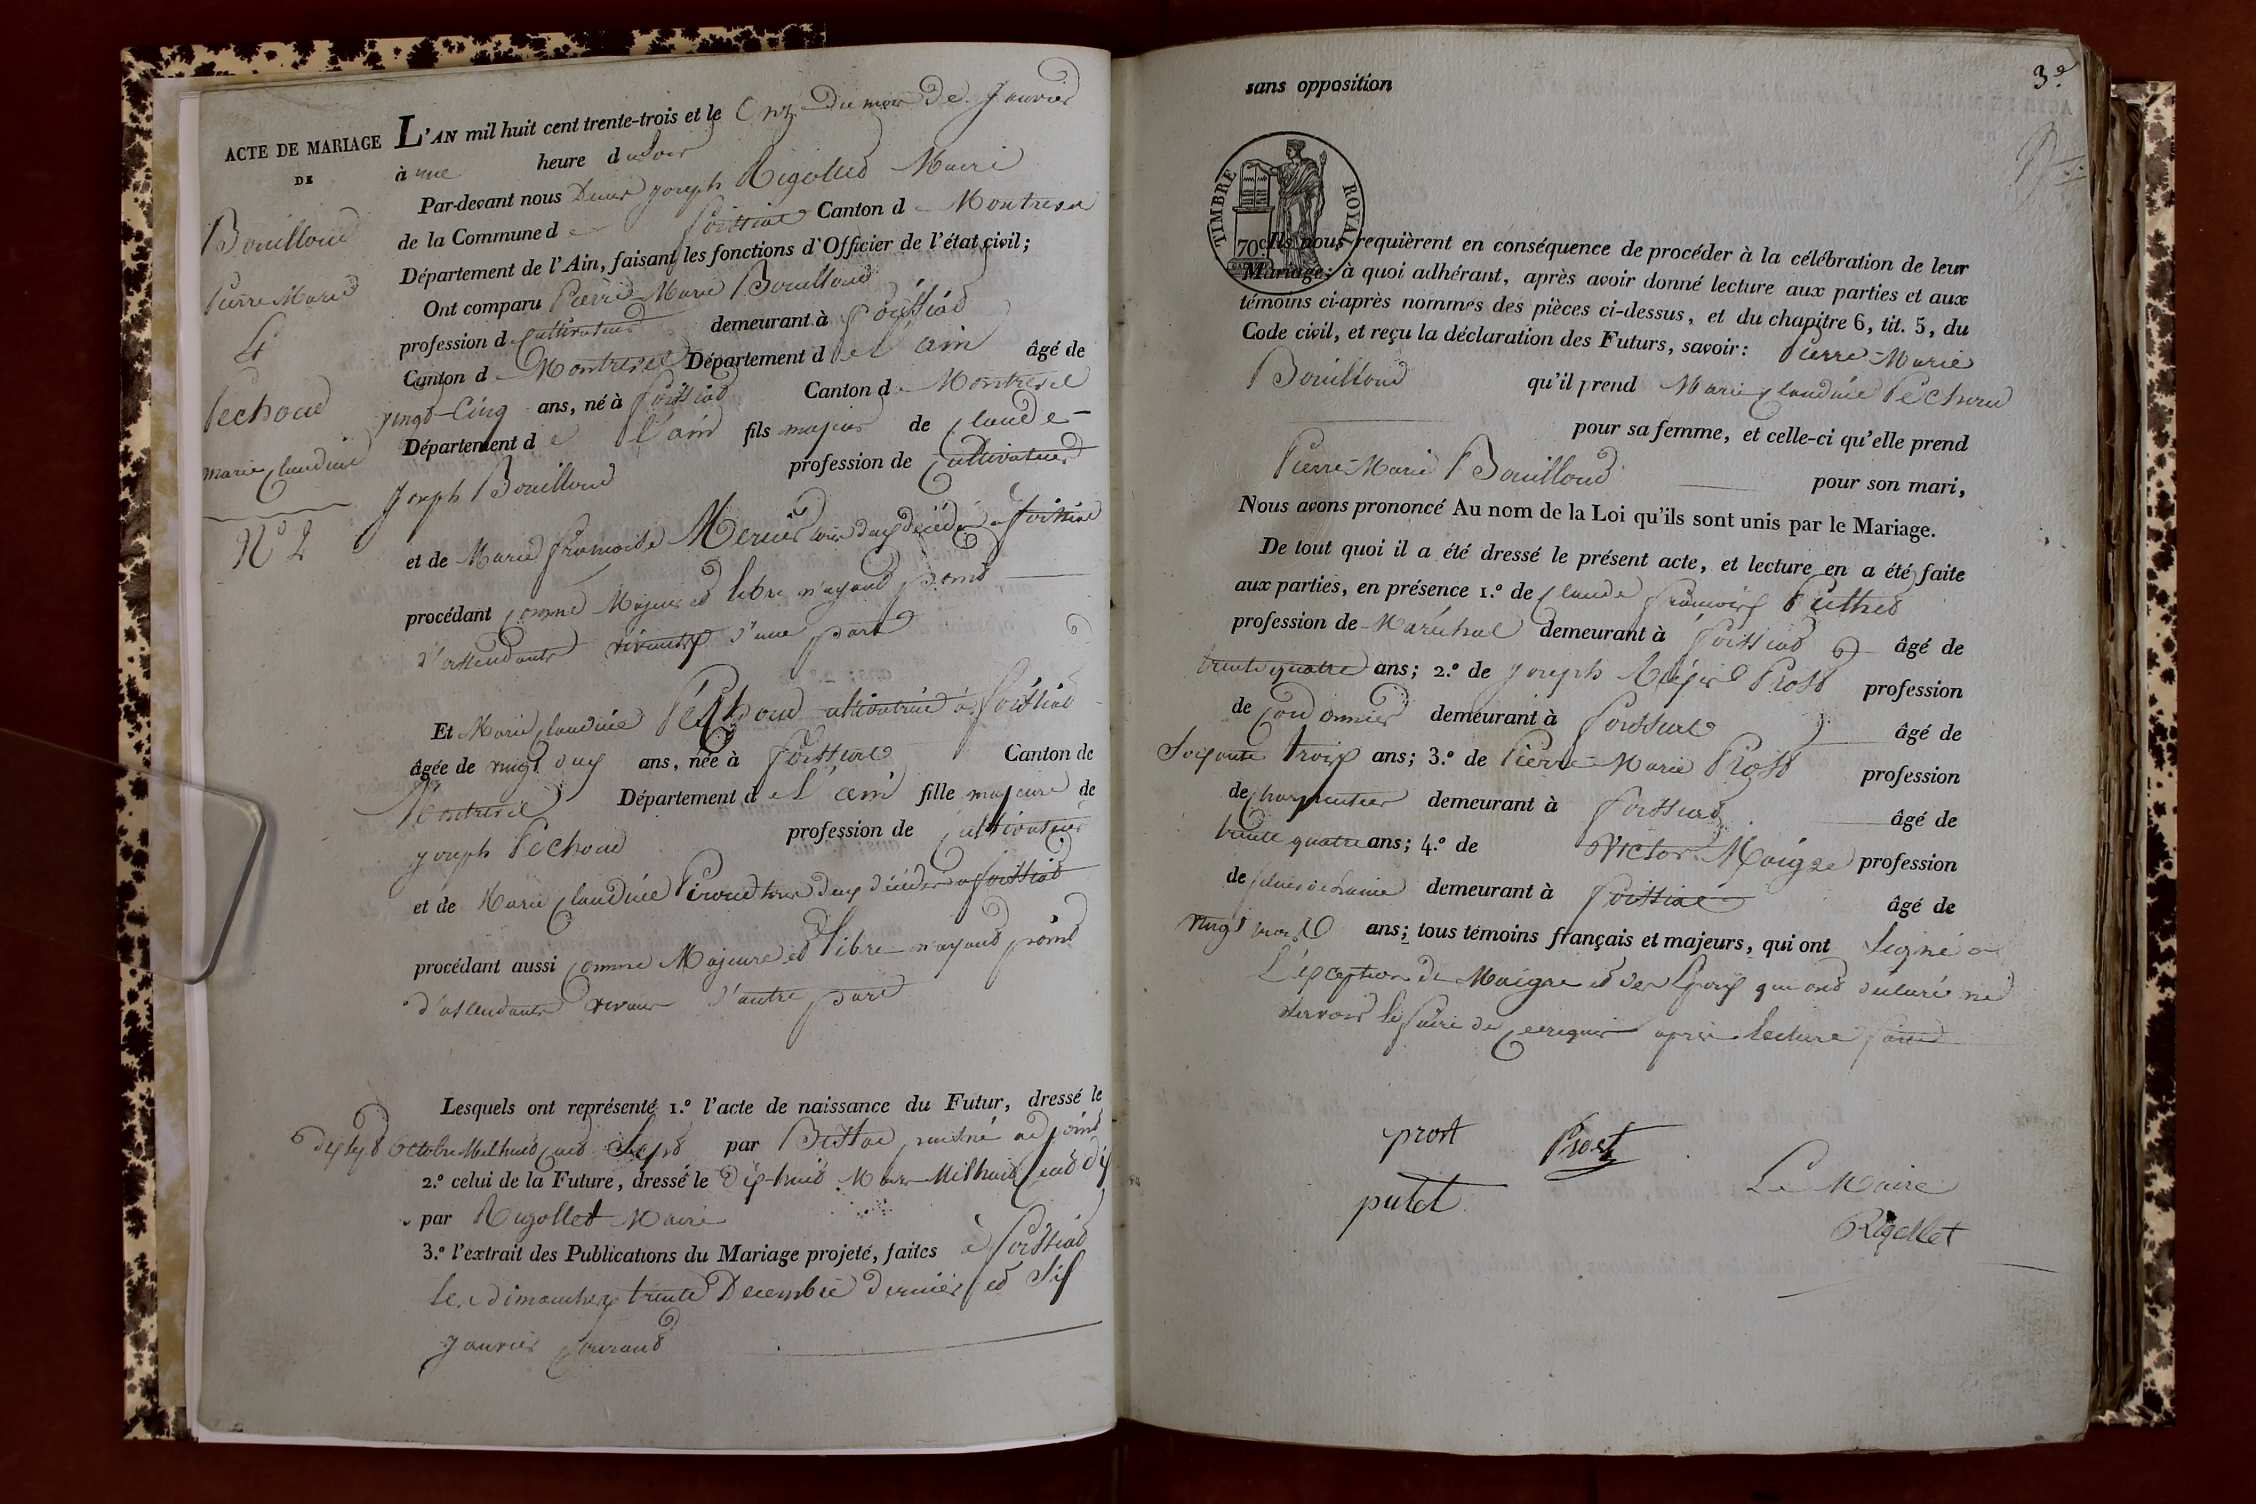 ACTE DE MARIAGE
DE
Bouilloud
Pierre Marie
Et
Pechoud
marie Claudine
N° 2
L'AN mil huit cent trente-trois et le Onze du mois de Janvier
à une heure du soir
Par-devant nous Denis Joseph Rigollet Maire
de la Commune de Foissiat Canton de Montrevel
Département de l'Ain, faisant les fonctions d'Officier de l'état civil;
Ont comparu Pierre Marie Bouilloud
profession de Cultivateur demeurant à Foissiat
Canton de Montrevel Département de l'ain âgé de
vingt-Cinq ans, né à Foissiat Canton de Montrevel
Département de l'ain fils majeur de Claude-
Joseph Bouilloud profession de Cultivateur
et de Marie françoise Mercier tous deux décédés a foissiat
procédant comme Majeur et libre n'ayant point
d'assendants vivants d'une part
Et Marie Claudine Péchoud cultivatrice à Foissiat
âgée de vingt deux ans, née à Foissiat Canton de
Montrevel Département de l'ain fille majeure de
joseph Péchoud profession de Cultivateur
et de Marie Claudine tous deux décédés a foissiat
procédant aussi comme Majeure et libre n'ayant point
d'assendants vivans d'autre part
Lesquels ont représenté 1.° l'acte de naissance du Futur, dressé le
dix sept octobre Mil huit cent Sept par adjoint
2.° celui de la Future, dressé le Dix-huit Mars Mil huit Cent dix
par Rigollet Maire
3.° l'extrait des Publications du Mariage projeté, faites à foissiat
les dimanches trente Decembre dernier et Six
Janvier Courant
3e
sans opposition
TIMBRE ROYAL
70c
Ils nous requièrent en conséquence de procéder à la célébration de leur
Mariage; à quoi adhérant, après avoir donné lecture aux parties et aux
témoins ci-après nommés des pièces ci-dessus, et du chapitre 6, tit. 5, du
Code civil, et reçu la déclaration des Futurs, savoir: Pierre-Marie
Bouilloud qu'il prend Marie Claudine Péchoud
pour sa femme, et celle-ci qu'elle prend
Pierre-Marie Bouilloud pour son mari,
Nous avons prononcé Au nom de la Loi qu'ils sont unis par le Mariage.
De tout quoi il a été dressé le présent acte, et lecture en a été faite
aux parties, en présence 1.° de Claude françois Puthet
profession de Maréchal demeurant à foissiat âgé de
trente quatre ans; 2.° de joseph Prost profession
de Cordonnier demeurant à foissiat âgé de
Soixante trois ans; 3.° de Pierre-Marie Prost profession
de charpentier demeurant à foissiat âgé de
trente quatre ans; 4.° de Victor Maigre profession
de demeurant à foissiat âgé de
vingt ans; tous témoins français et majeurs, qui ont Signé a
L'exception de Maigre et des Epoux qui ont déclaré ne
savoir le faire de ce requis après lecture faite
prost Prost
putet
Le Maire
Rigollet